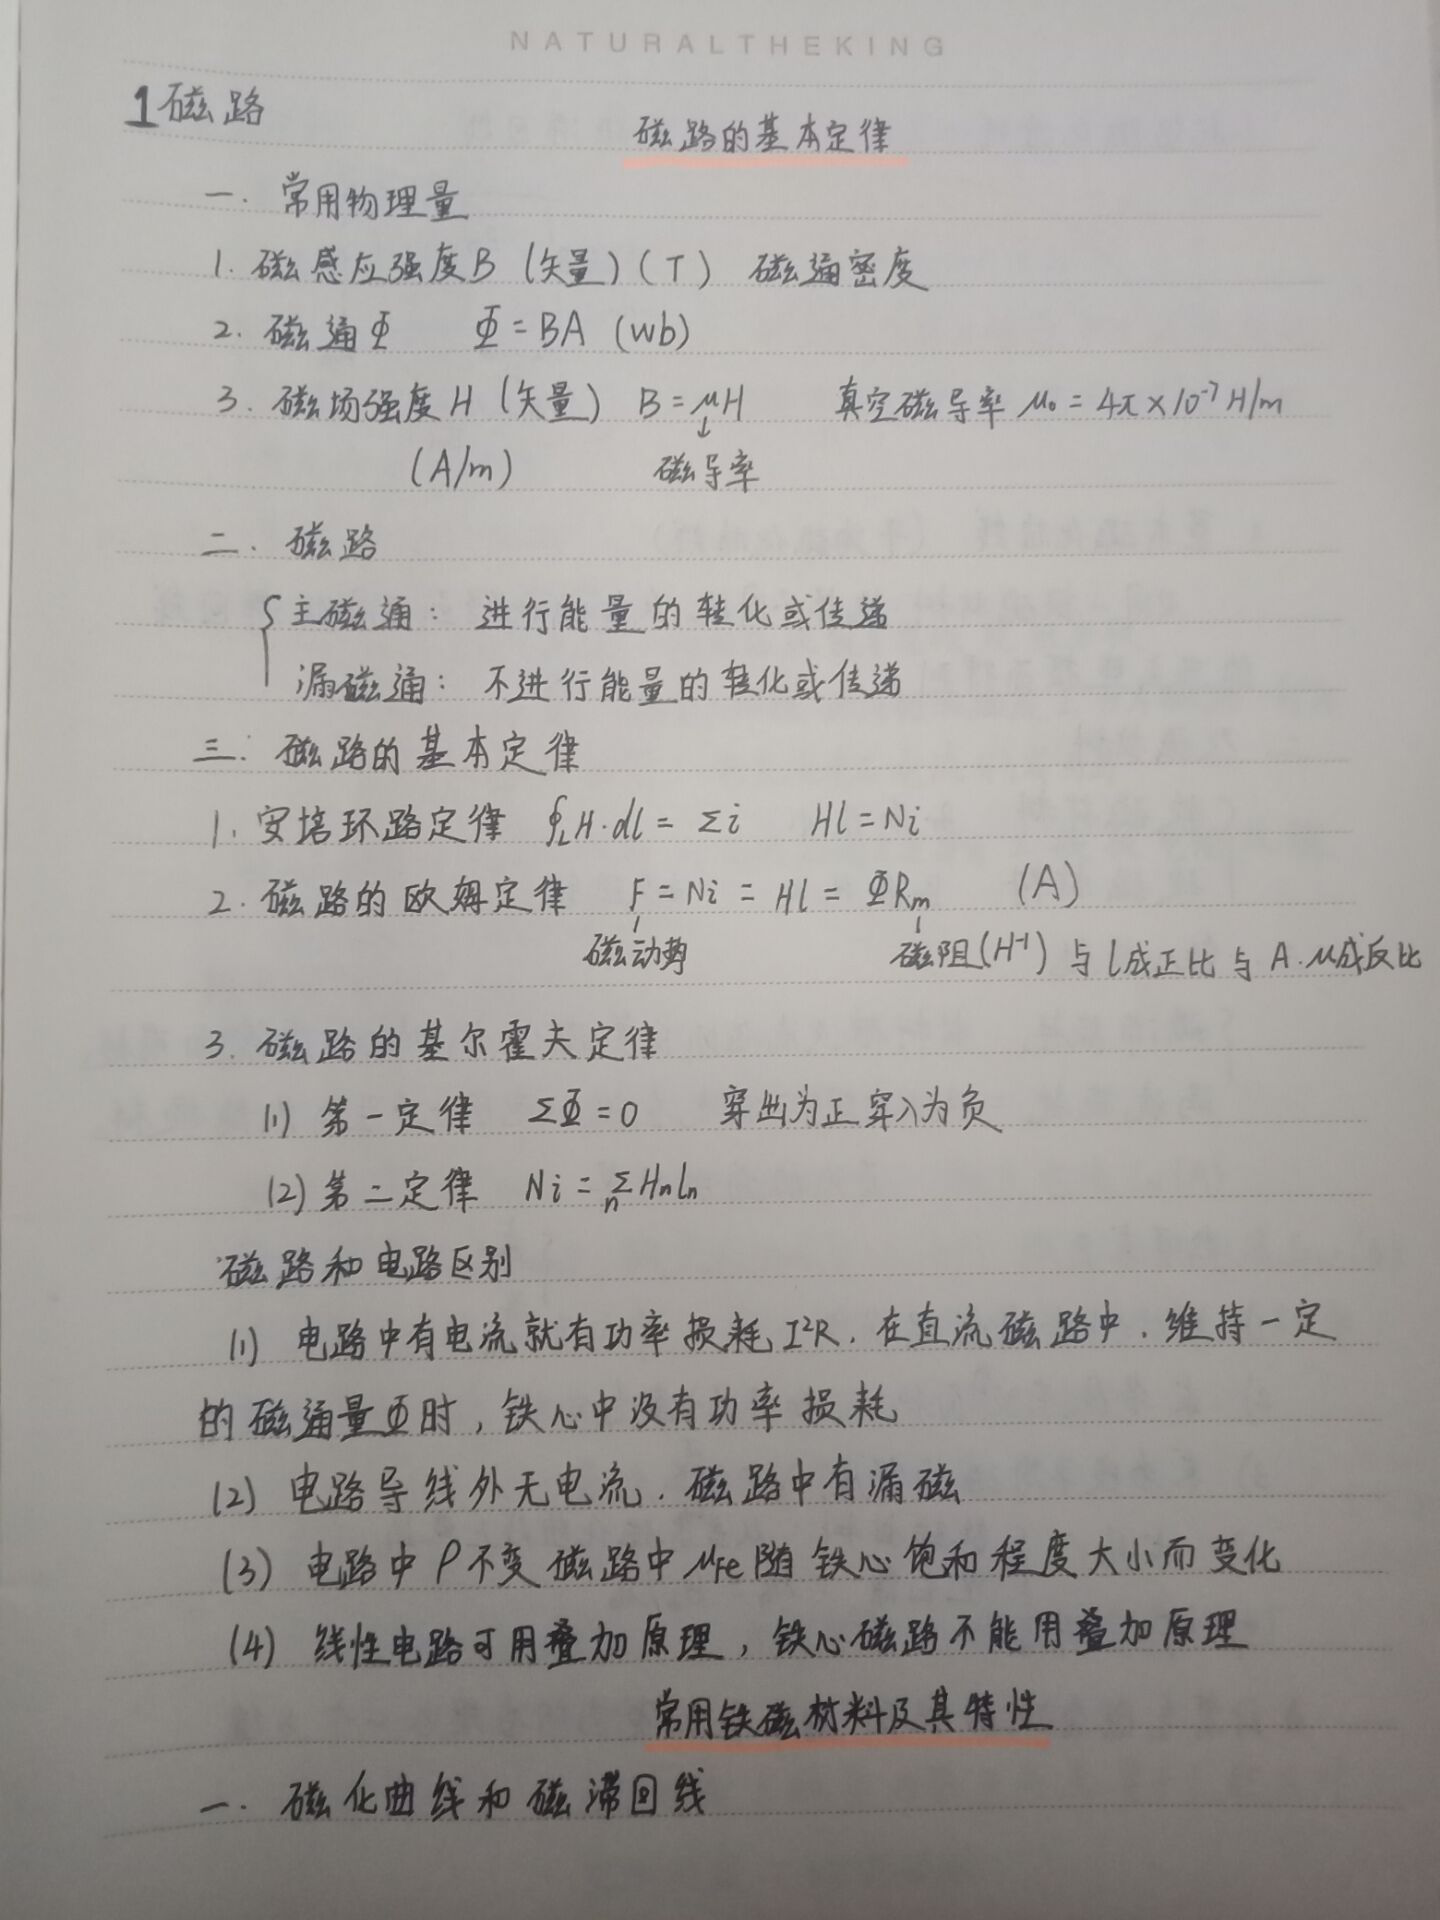 NATURALTHEKING
1磁路
磁路的基本定律
一. 常用物理量
1. 磁感应强度B (矢量) (T) 磁通密度
2. 磁通Φ Φ=BA (wb)
3. 磁场强度H (矢量) B=μH 真空磁导率 μ₀=4π×10⁻⁷H/m
↓
(A/m) 磁导率
二. 磁路
{主磁通: 进行能量的转化或传递
漏磁通: 不进行能量的转化或传递
三. 磁路的基本定律
1. 安培环路定律 ∮LH·dl=Σi Hl=Ni
2. 磁路的欧姆定律 F=Ni=Hl=ΦRm (A)
磁动势 磁阻(H⁻¹) 与l成正比与A.μ成反比
3. 磁路的基尔霍夫定律
(1) 第一定律 ΣΦ=0 穿出为正穿入为负
(2) 第二定律 Ni=ΣnHnln
磁路和电路区别
(1) 电路中有电流就有功率损耗I²R.在直流磁路中.维持一定
的磁通量Φ时,铁心中没有功率损耗
(2) 电路导线外无电流.磁路中有漏磁
(3) 电路中ρ不变 磁路中μFe随铁心饱和程度大小而变化
(4) 线性电路可用叠加原理,铁心磁路不能用叠加原理
常用铁磁材料及其特性
一. 磁化曲线和磁滞回线